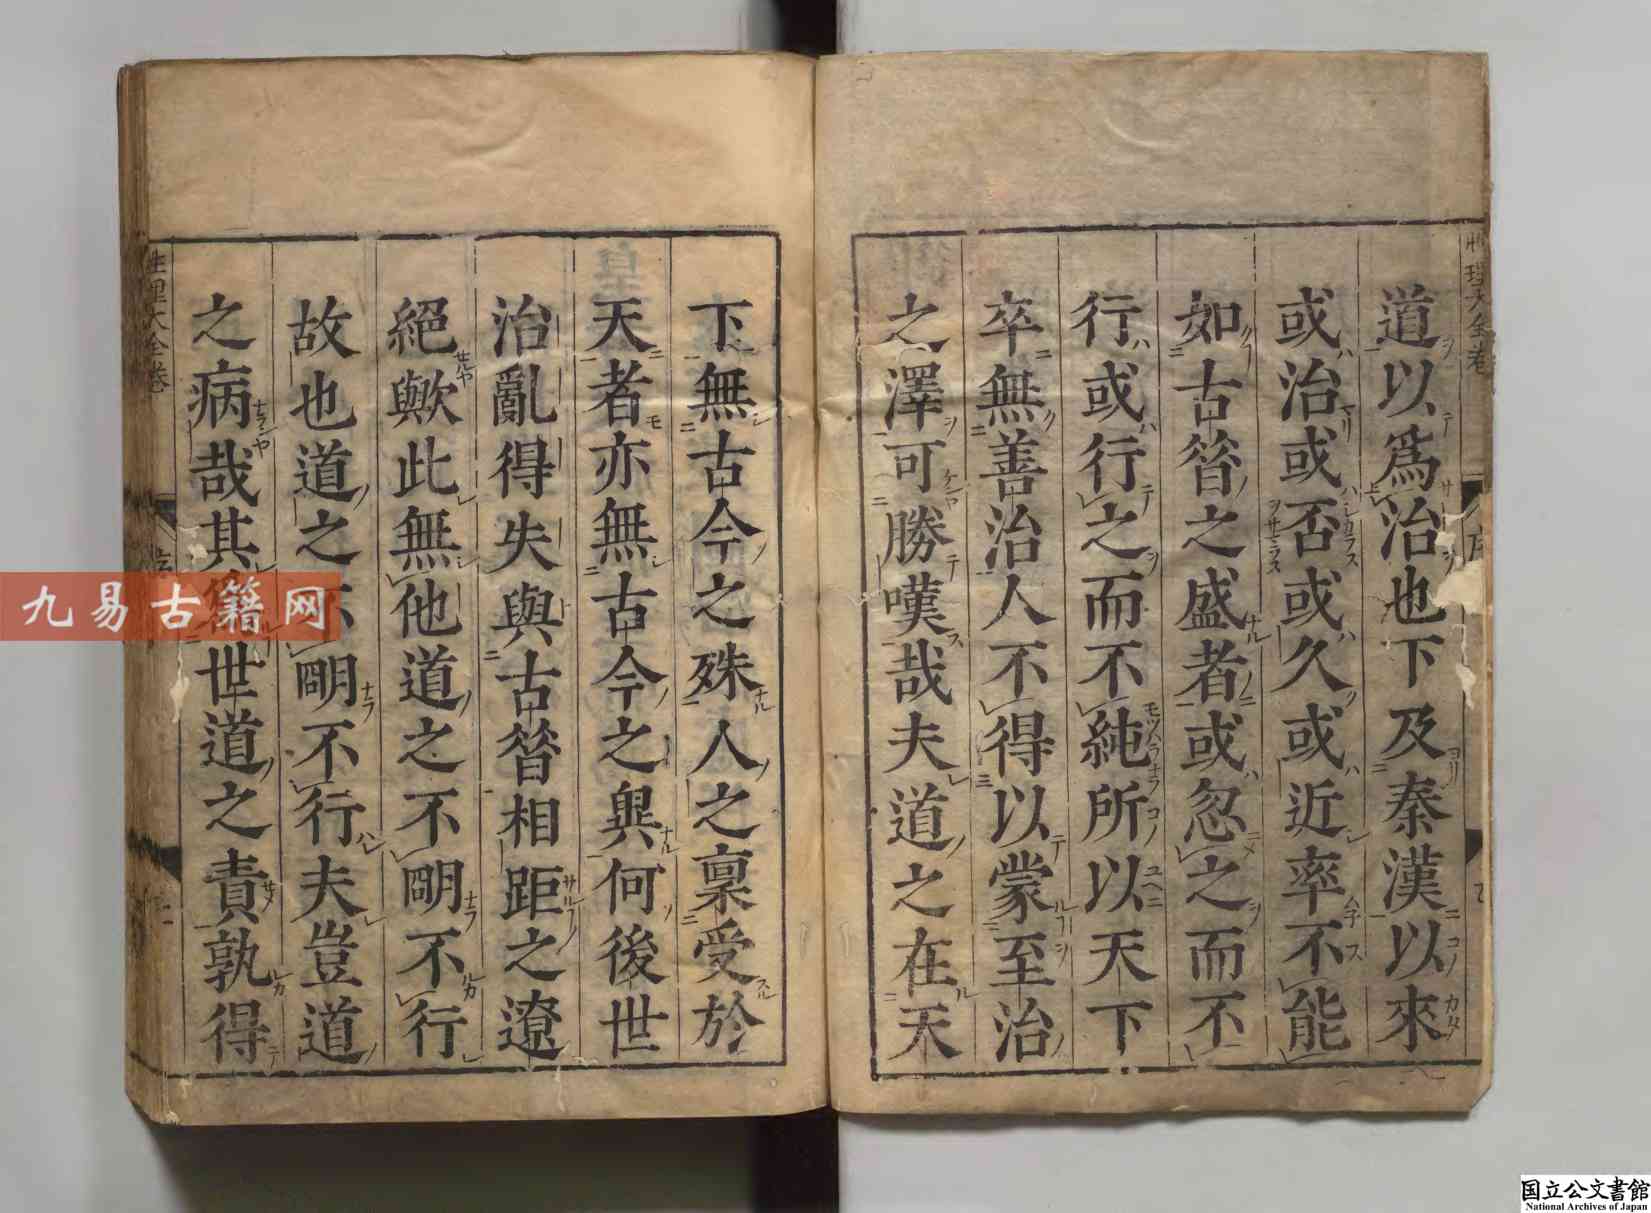 道以爲治也下及秦漢以來
或治或否或久或近率不能
如古昔之盛者或忽之而不
行或行之而不純所以天下
卒無善治人不得以蒙至治
之澤可勝嘆哉夫道之在天
下無古今之殊人之稟受於
天者亦無古今之異何後世
治亂得失與古昔相距之遼
絕歟此無他道之不明不行
故也道之不明不行夫豈道
之病哉其爲世道之責孰得
性理大全卷
序
九易古籍网
国立公文書館
National Archives of Japan